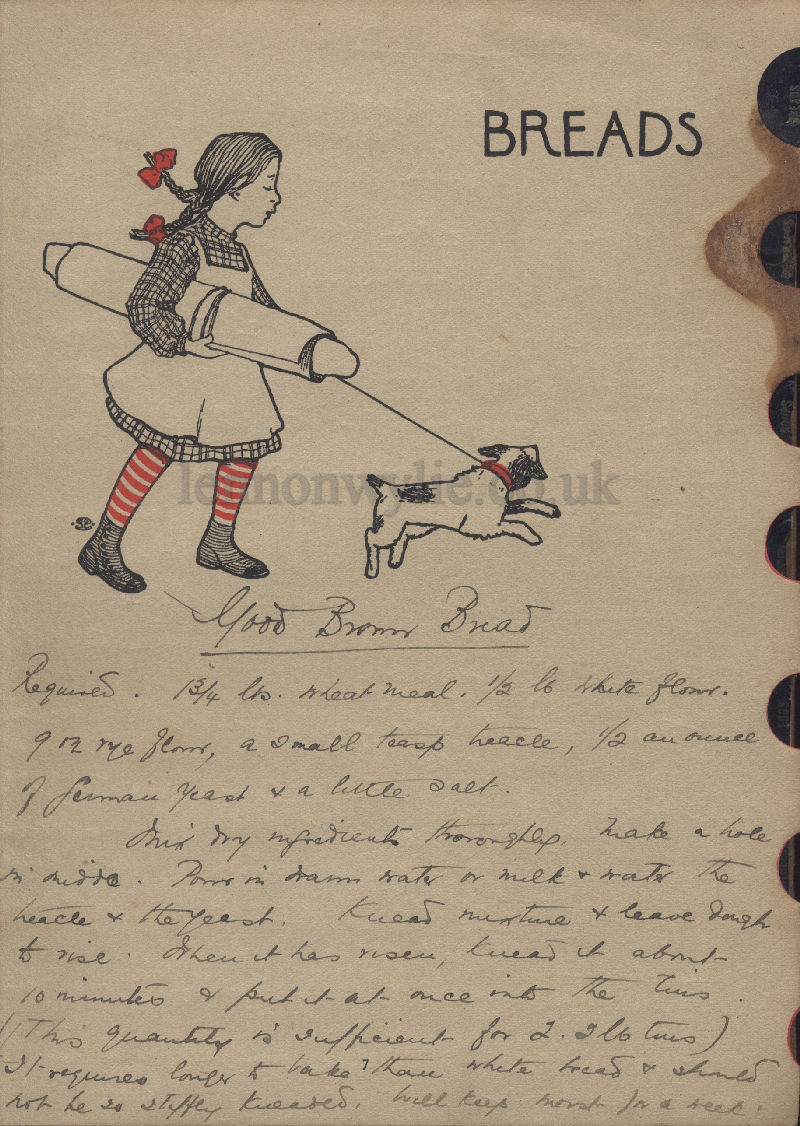 BREADS
lennonwylie.co.uk
Good Brown Bread
Required. 1 3/4 lbs. wheat meal. 1/2 lb white flour.
9 oz rye flour, a small teasp treacle, 1/2 an ounce
of German yeast & a little salt.
Mix dry ingredients thoroughly, make a hole
in middle. Pour in warm water or milk & water the
treacle & the yeast. Knead mixture & leave dough
to rise. When it has risen, knead it about
10 minutes & put it at once into the tins.
(This quantity is sufficient for 2. 2 lb tins)
It requires longer to bake than white bread & should
not be so stiffly kneaded. Will keep moist for a week.